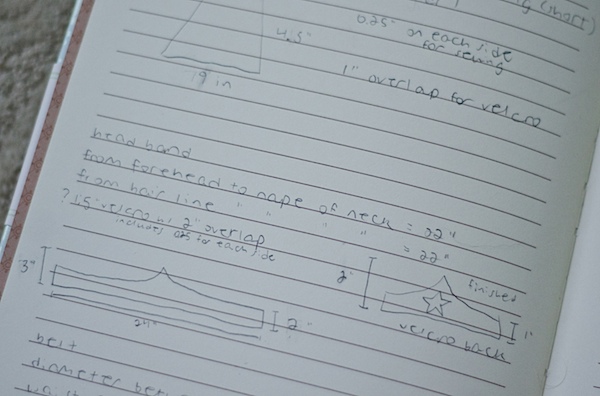 (short)
4.5"
0.25" on each side
for sewing
19 in
1" overlap for velcro
head band
from forehead to nape of neck = 22"
from hair line " " " " = 22"
? 1.5" velcro w/ 2" overlap
includes .25 for each side
3"
2"
finished
24"
2"
1"
velcro back
belt
diameter